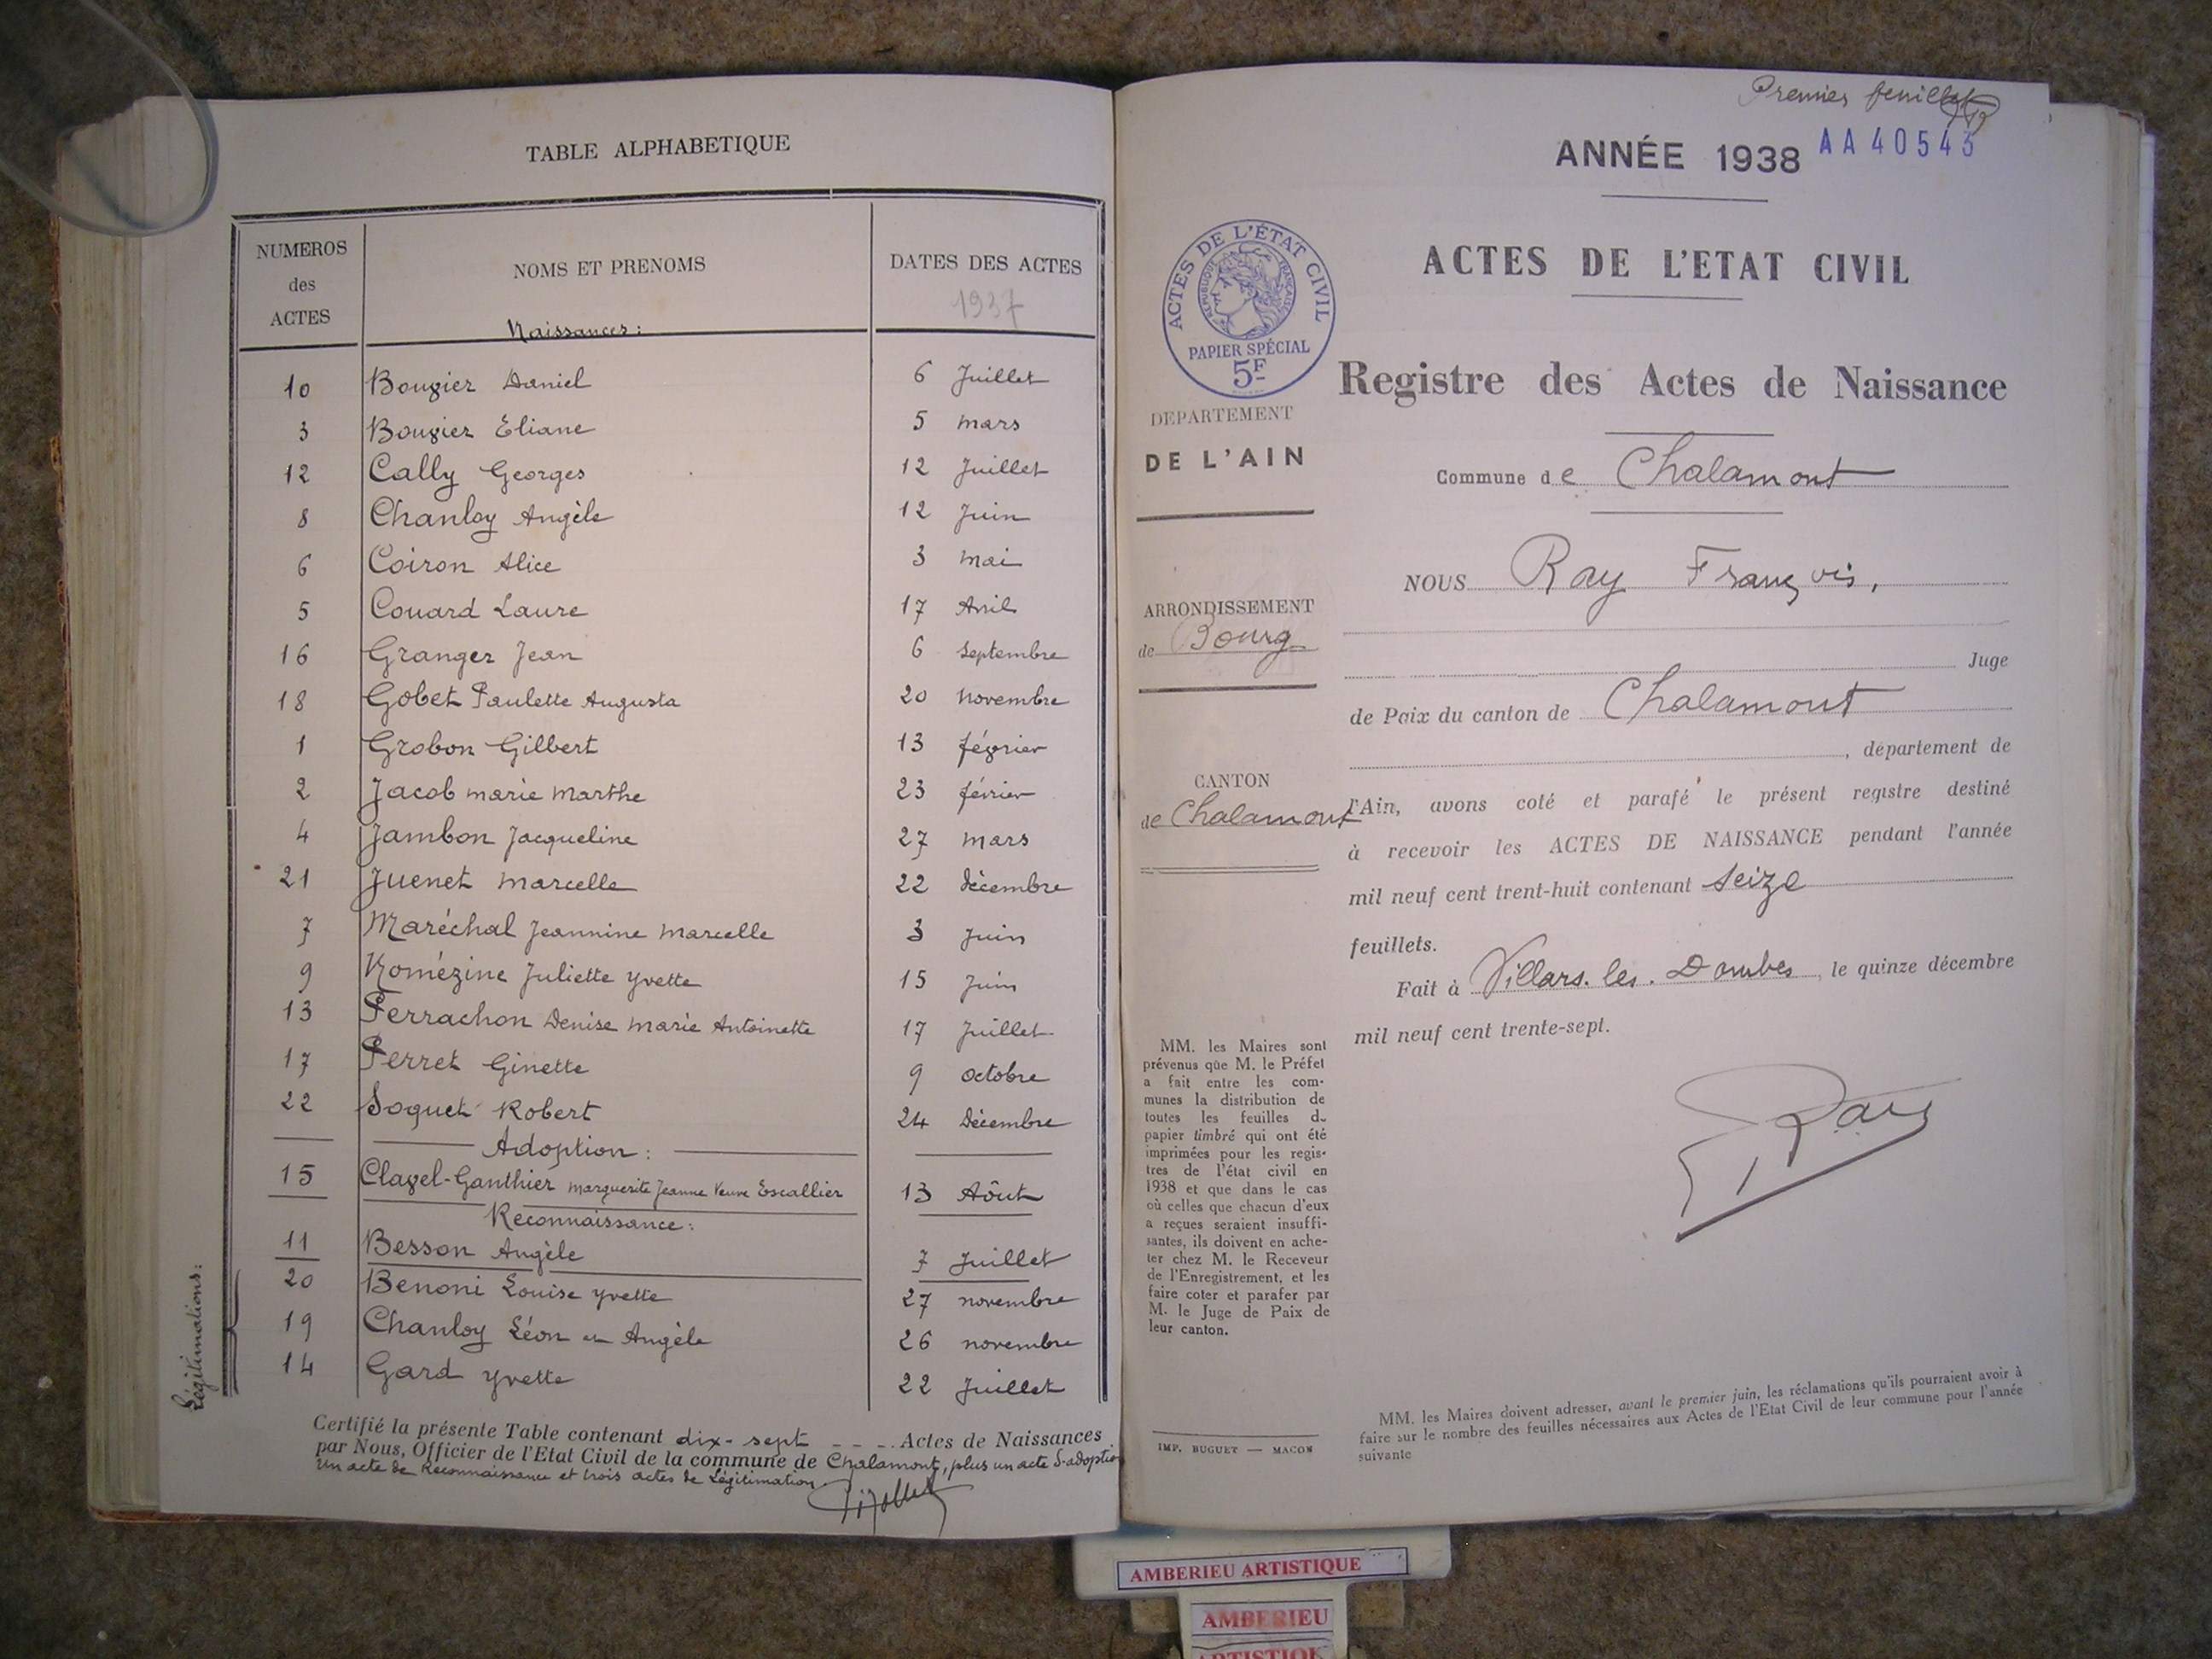 TABLE ALPHABETIQUE
NUMEROS des ACTES
NOMS ET PRENOMS
DATES DES ACTES
1937
Naissances :
10 Bougier Daniel 6 Juillet
3 Bougier Eliane 5 mars
12 Cally Georges 12 Juillet
8 Chanloy Angèle 12 Juin
6 Coiron Alice 3 mai
5 Couard Laure 17 Avril
16 Granger Jean 6 Septembre
18 Gobet Paulette Augusta 20 novembre
1 Grobon Gilbert 13 février
2 Jacob marie Marthe 23 février
4 Jambon Jacqueline 27 mars
21 Juenet marcelle 22 décembre
7 Maréchal Jeannine Marcelle 3 Juin
9 Nomézine Juliette Yvette 15 Juin
13 Perrachon Denise marie Antoinette 17 Juillet
17 Perret Ginette 9 octobre
22 Soquet Robert 24 Décembre
Adoption :
15 Clavel-Ganthier Marguerite Jeanne Veuve Escallier 13 Aôut
Reconnaissance :
11 Besson Angèle 7 Juillet
Légitimations :
20 Benoni Louise Yvette 27 novembre
19 Chanloy Léon et Angèle 26 novembre
14 Gard Yvette 22 Juillet
Certifié la présente Table contenant dix-sept - - - Actes de Naissances
par Nous, Officier de l'Etat Civil de la commune de Chalamont, plus un acte d'adoption
un acte de Reconnaissance et trois actes de Légitimation.
Premier feuillet
ANNÉE 1938 AA40543
ACTES DE L'ETAT CIVIL
ACTES DE L'ÉTAT CIVIL
RÉPUBLIQUE FRANÇAISE
PAPIER SPÉCIAL
5F
Registre des Actes de Naissance
DEPARTEMENT
DE L'AIN
Commune de Chalamont
NOUS Ray François,
ARRONDISSEMENT
de Bourg
Juge
de Paix du canton de Chalamont
, département de
CANTON
de Chalamont
l'Ain, avons coté et parafé le présent registre destiné
à recevoir les ACTES DE NAISSANCE pendant l'année
mil neuf cent trent-huit contenant seize
feuillets.
Fait à Villars-les-Dombes, le quinze décembre
mil neuf cent trente-sept.
Ray
MM. les Maires sont
prévenus que M. le Préfet
a fait entre les com-
munes la distribution de
toutes les feuilles de
papier timbré qui ont été
imprimées pour les regis-
tres de l'état civil en
1938 et que dans le cas
où celles que chacun d'eux
a reçues seraient insuffi-
santes, ils doivent en ache-
ter chez M. le Receveur
de l'Enregistrement, et les
faire coter et parafer par
M. le Juge de Paix de
leur canton.
IMP. BUGUET — MACON
MM. les Maires doivent adresser, avant le premier juin, les réclamations qu'ils pourraient avoir à
faire sur le nombre des feuilles nécessaires aux Actes de l'Etat Civil de leur commune pour l'année
suivante
AMBERIEU ARTISTIQUE
AMBERIEU
ARTISTIQUE